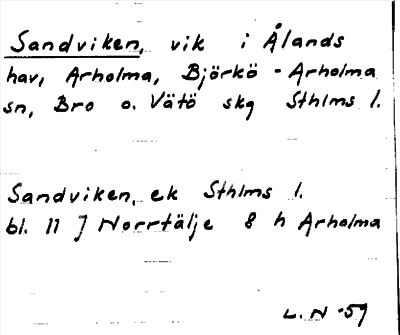 Sandviken, vik i Ålands
hav, Arholma, Björkö - Arholma
sn, Bro o. Vätö skg Sthlms l.
Sandviken, ek Sthlms l.
bl. 11 J Norrtälje 8 h Arholma
L. N -59